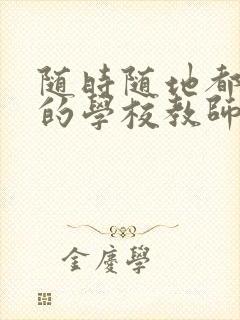 随時随地都
的學校教師
金慶學